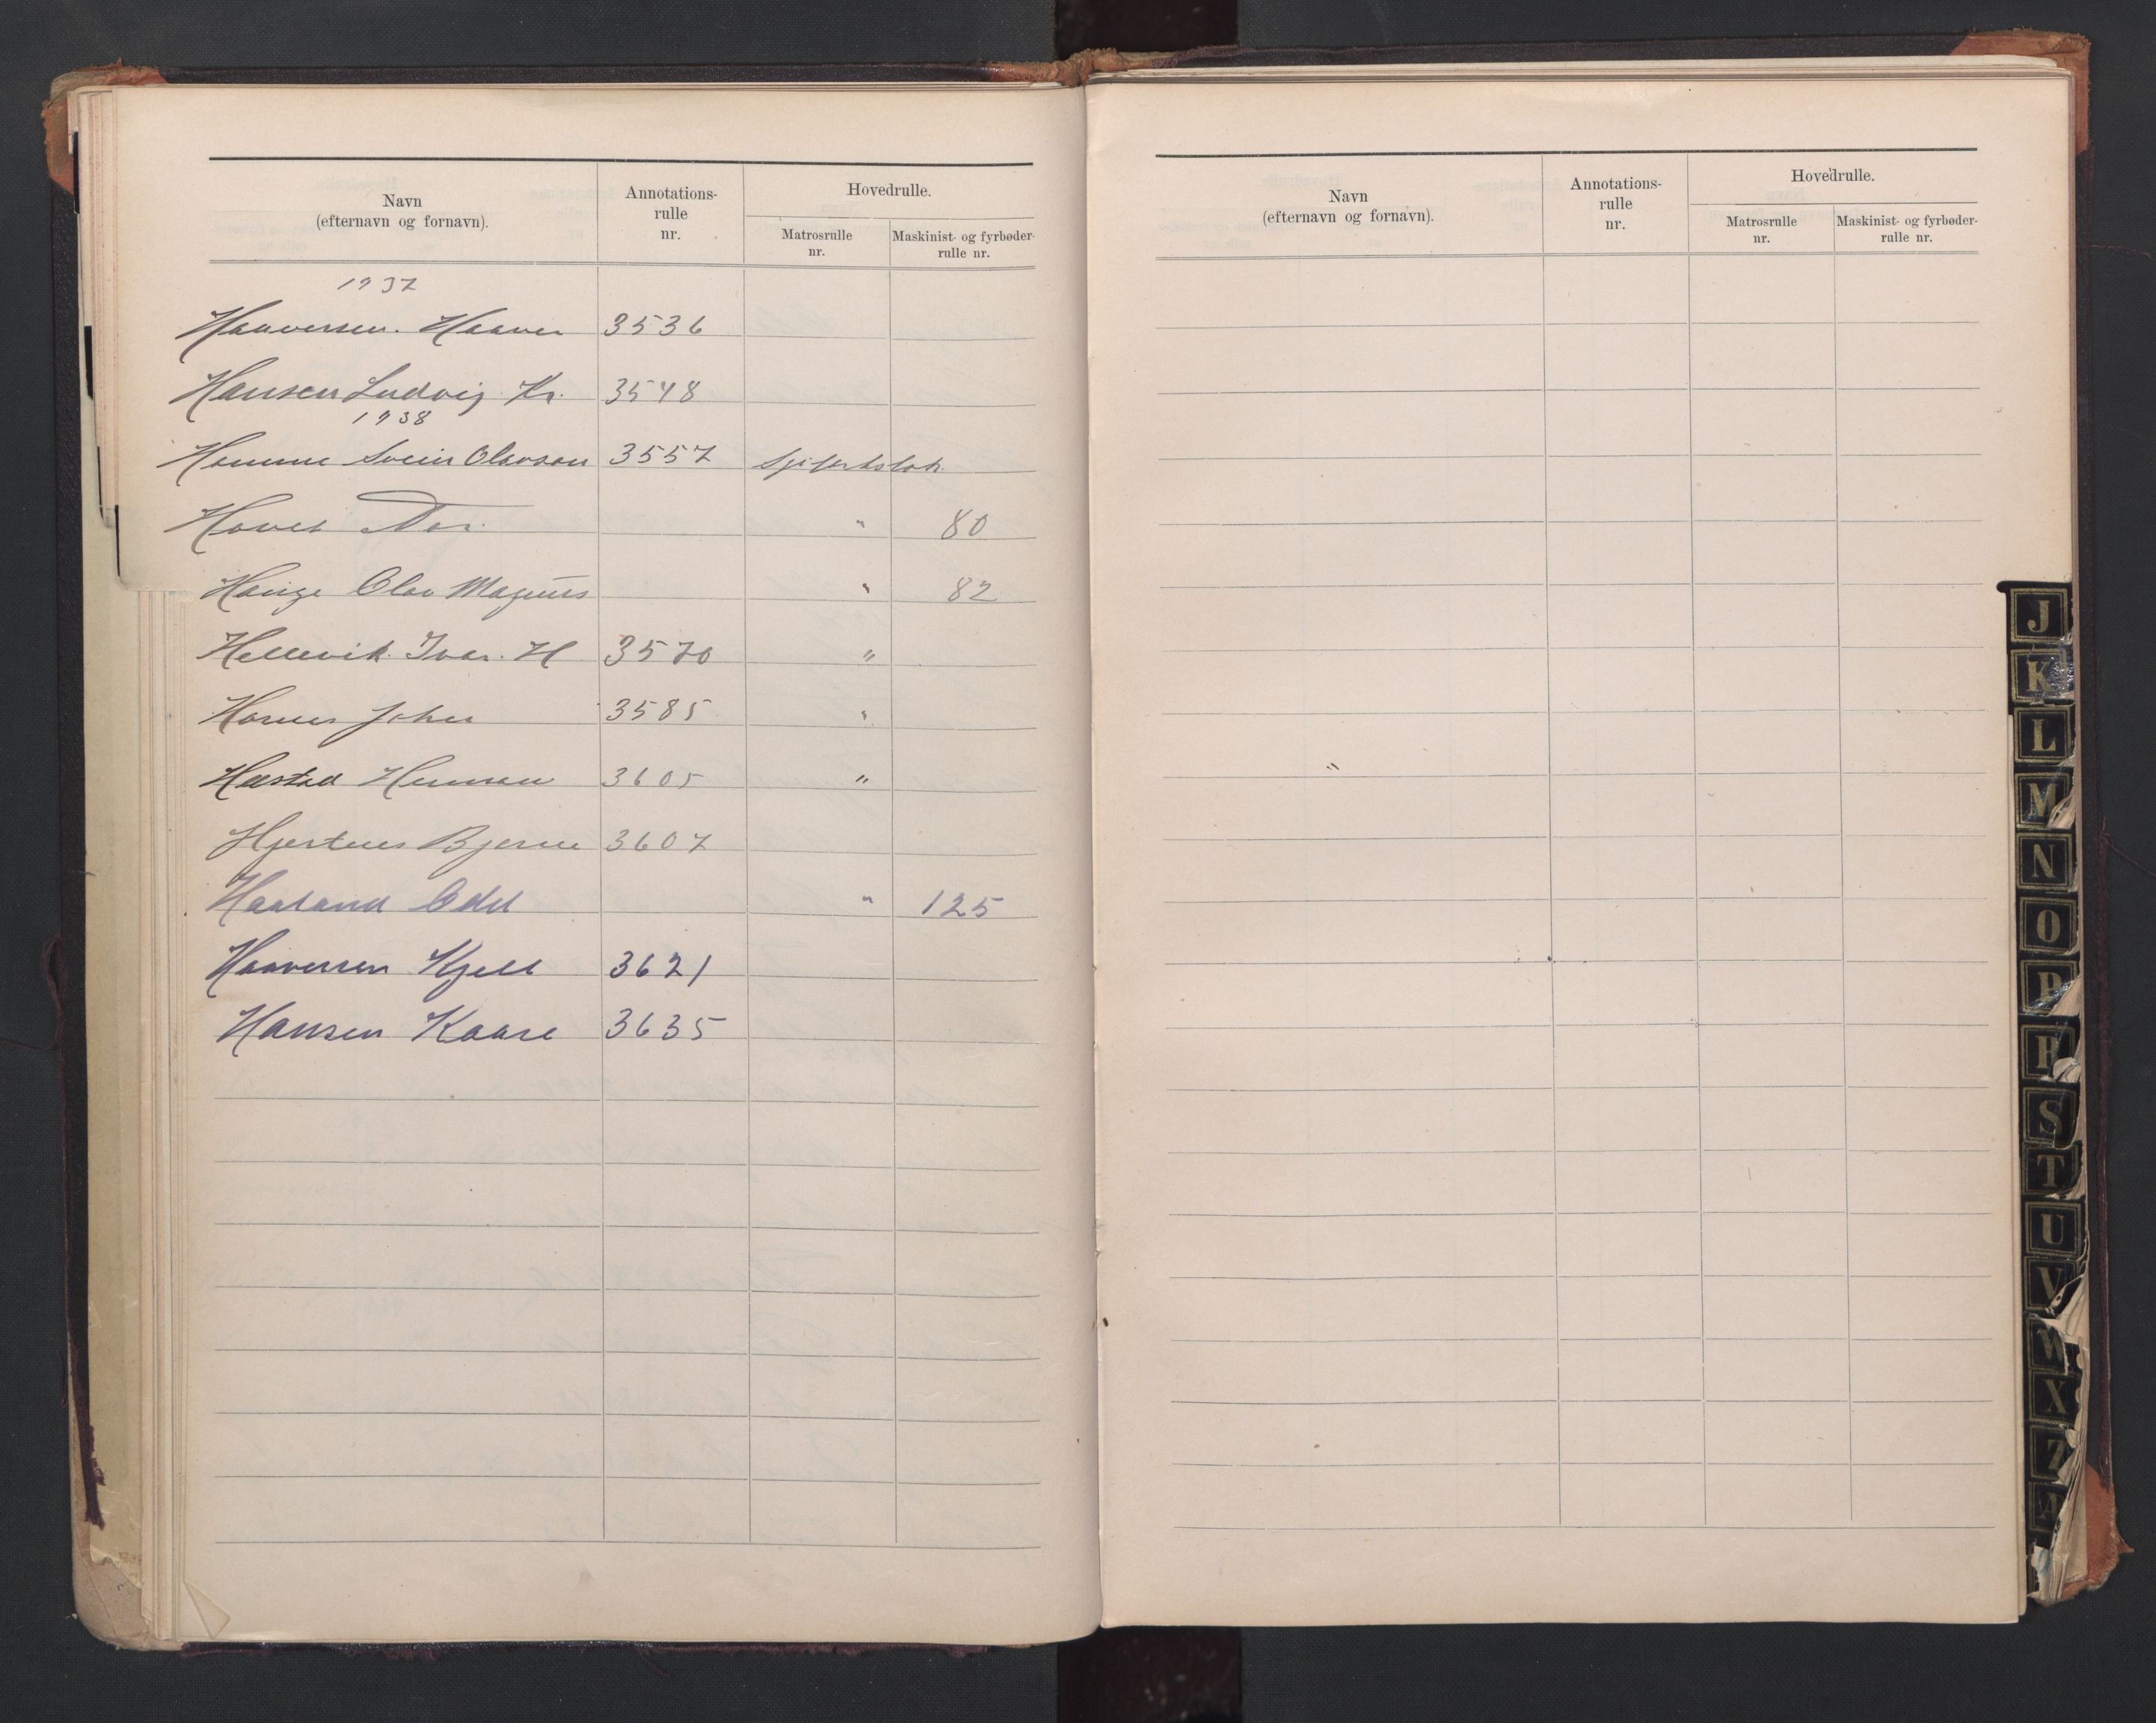 Navn
(efternavn og fornavn).
Annotations-
rulle
nr.
Hovedrulle.
Matrosrulle
nr.
Maskinist- og fyrbøder-
rulle nr.
1937
Haaversen. Haaver 3536
Hansen Ludvig Kr. 3548
1938
Homme Svein Olavson 3557
Hovet Tor. " 80
Hauge Olav Magnus " 82
Hellevik Ivar. H 3570 "
Hornes Johen 3585 "
Hæstad Herman 3605 "
Hjertnes Bjarne 3607
Haaland Odd " 125
Haaversen Kjell 3621
Hansen Kaare 3635
Navn
(efternavn og fornavn).
Annotations-
rulle
nr.
Hovedrulle.
Matrosrulle
nr.
Maskinist- og fyrbøder-
rulle nr.
"
J
K
L
M
N
O
P
R
S
T
U
V
W
X
Z